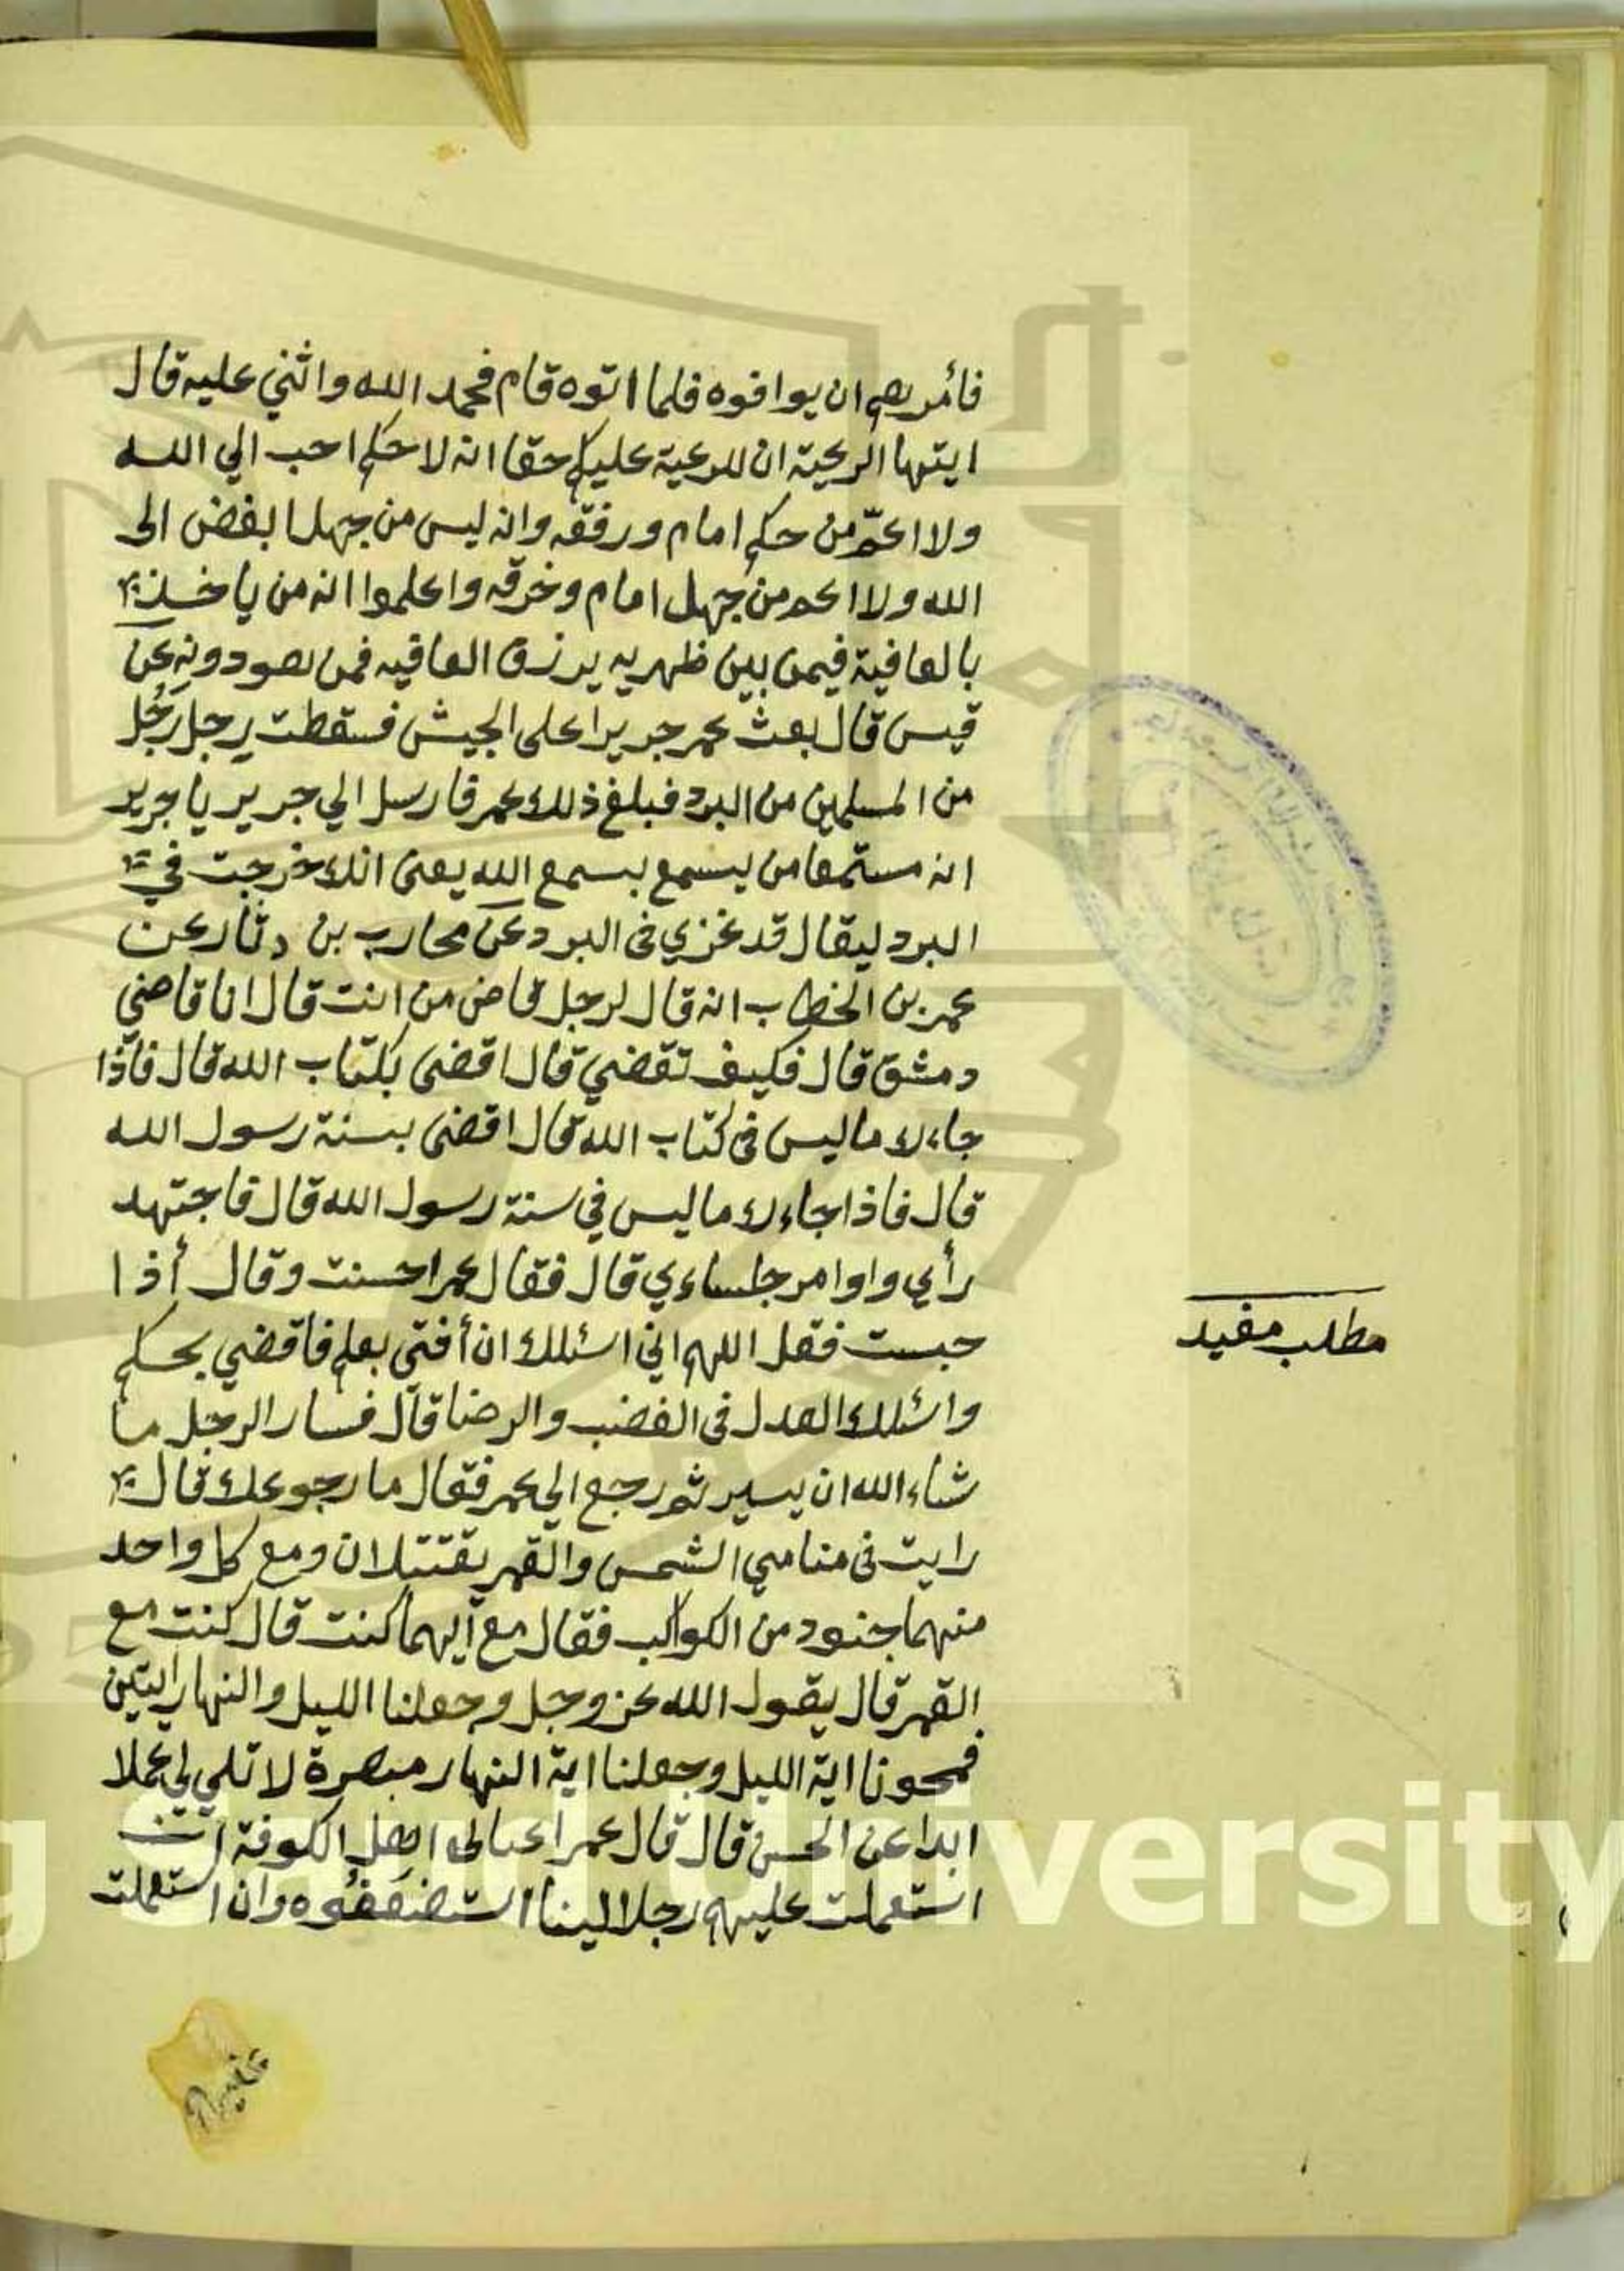 فأمرهم ان يوافوه فلما اتوه قام فحمد الله واثني عليه قال
ايتها الرعية ان للرعية عليكم حقا انه لا حكم احب الي الله
ولا اعمّ من حكم امام ورفقه وانه ليس من جهل ابغض الى
الله ولا اعم من جهل امام وخرقه واعلموا انه من ياخذ
بالعافية فيمن بين ظهريه يرزق العافيه فمن دونه عن
قيس قال بعث عمر جريرا على الجيش فسقطت رجل رَجُل
من المسلمين من البرد فبلغ ذلك عمر فارسل الي جرير يا جرير
انه مستمعا من يسمع بسمع الله يعنى انك خرجت في
البرد ليقال قد غزي فى البرد عن محارب بن دثار عن
عمر بن الخطاب انه قال لرجل قاض من انت قال انا قاضي
دمشق قال فكيف تقضي قال اقضى بكتاب الله قال فاذا
جاءك ما ليس فى كتاب الله قال اقضى بسنة رسول الله
قال فاذا جاءك ما ليس في سنة رسول الله قال فاجتهد
رأي واوامر جلساءي قال فقال عمر احسنت وقال أذا
جبست فقل اللهم اني اسئلك ان أفتى بعلم فاقضي بحكم
واسئلك العدل فى الغضب والرضا قال فسار الرجل ما
شاء الله ان يسير ثم رجع الي عمر فقال ما رجوعك قال
رايت فى منامي الشمس والقمر يقتتلان ومع كل واحد
منهما جنود من الكواكب فقال مع أيهما كنت قال كنت مع
القمر قال يقول الله عز وجل وجعلنا الليل والنهار ايتين
فمحونا اية الليل وجعلنا اية النهار مبصرة لا تلي لي عملا
ابدا عن الحسن قال قال عمر اعيالى اهل الكوفة ان
استعملت عليهم رجلا لينا استضعفوه وان استعملت
مطلب مفيد